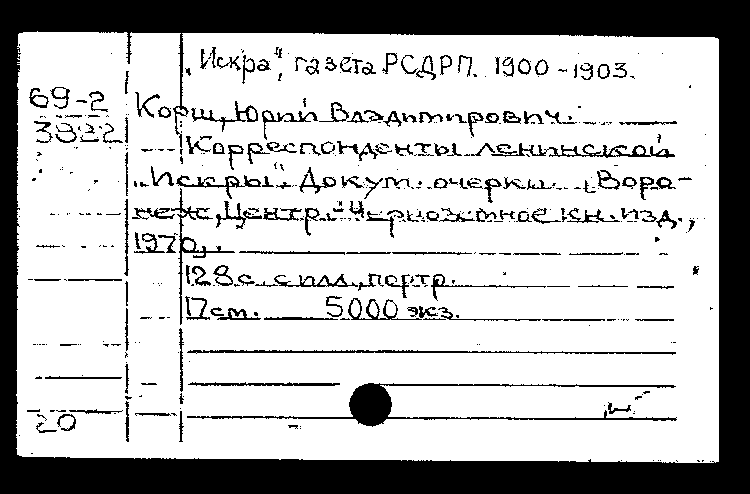 „Искра“, газета РСДРП. 1900-1903.
69-2
3822
Корш, Юрий Владимирович.
Корреспонденты ленинской
„Искры“. Докут. очерки. [Воро-
неж, Центр.-Черноземное кн. изд.,
1970].
128 с. с илл., портр.
17 см. 5000 экз.
20